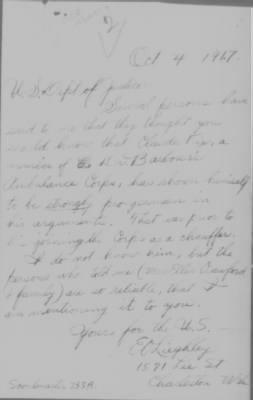 Oct 4 1917
U. S. Dept of Justice
Several persons have
said to me that they thought you
should know that Claude
a
member of the
Ambulance Corps, has shown himself
to be strongly pro-german in
his arguments. That was prior to
his joining the Corps as a chauffeur.
I do not know him, but the
persons who told me (Mr. & Mrs. Crawford
& family) are so reliable, that I
am mentioning it to you.
Yours for the U.S.
1571 Lee St
Charleston W Va